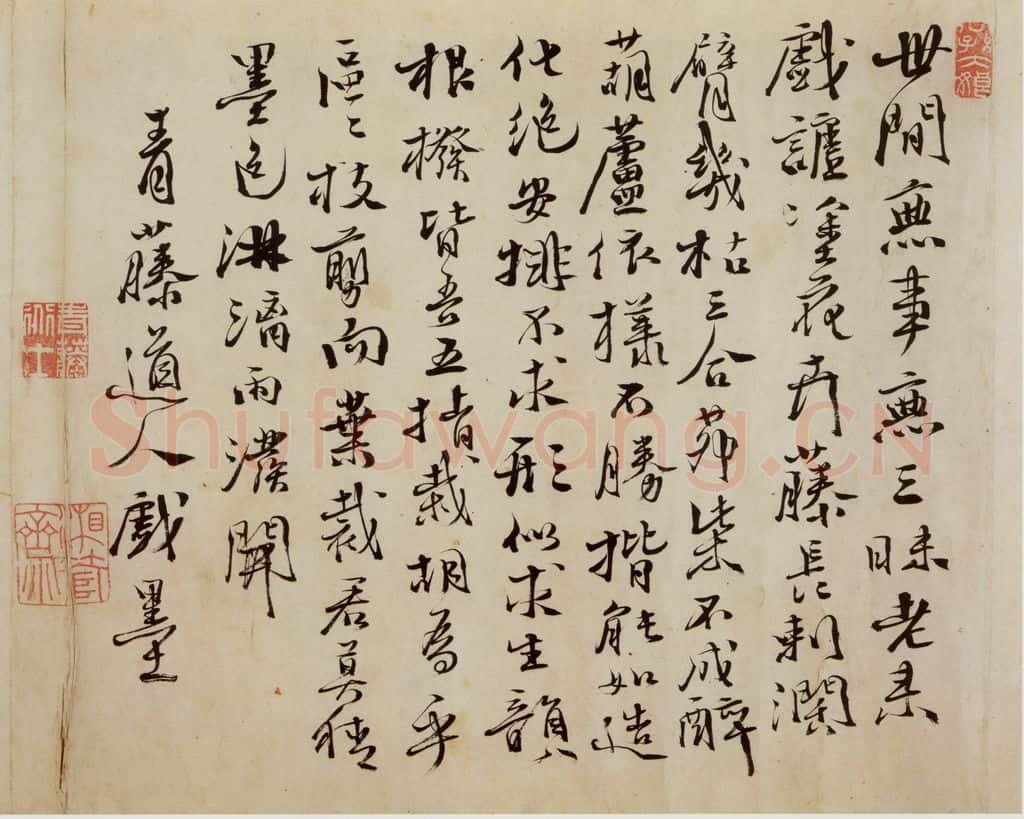 世間無事無三昧老来
戲謔塗花卉藤長刺闊
臂幾枯三合茅柴不成醉
葫蘆依樣不勝揩能如造
化絕安排不求形似求生韻
根撥皆吾五指栽胡為乎
區々枝剪而葉裁君莫猜
墨色淋漓雨潑開
青藤道人戲墨
Shufawang.CN